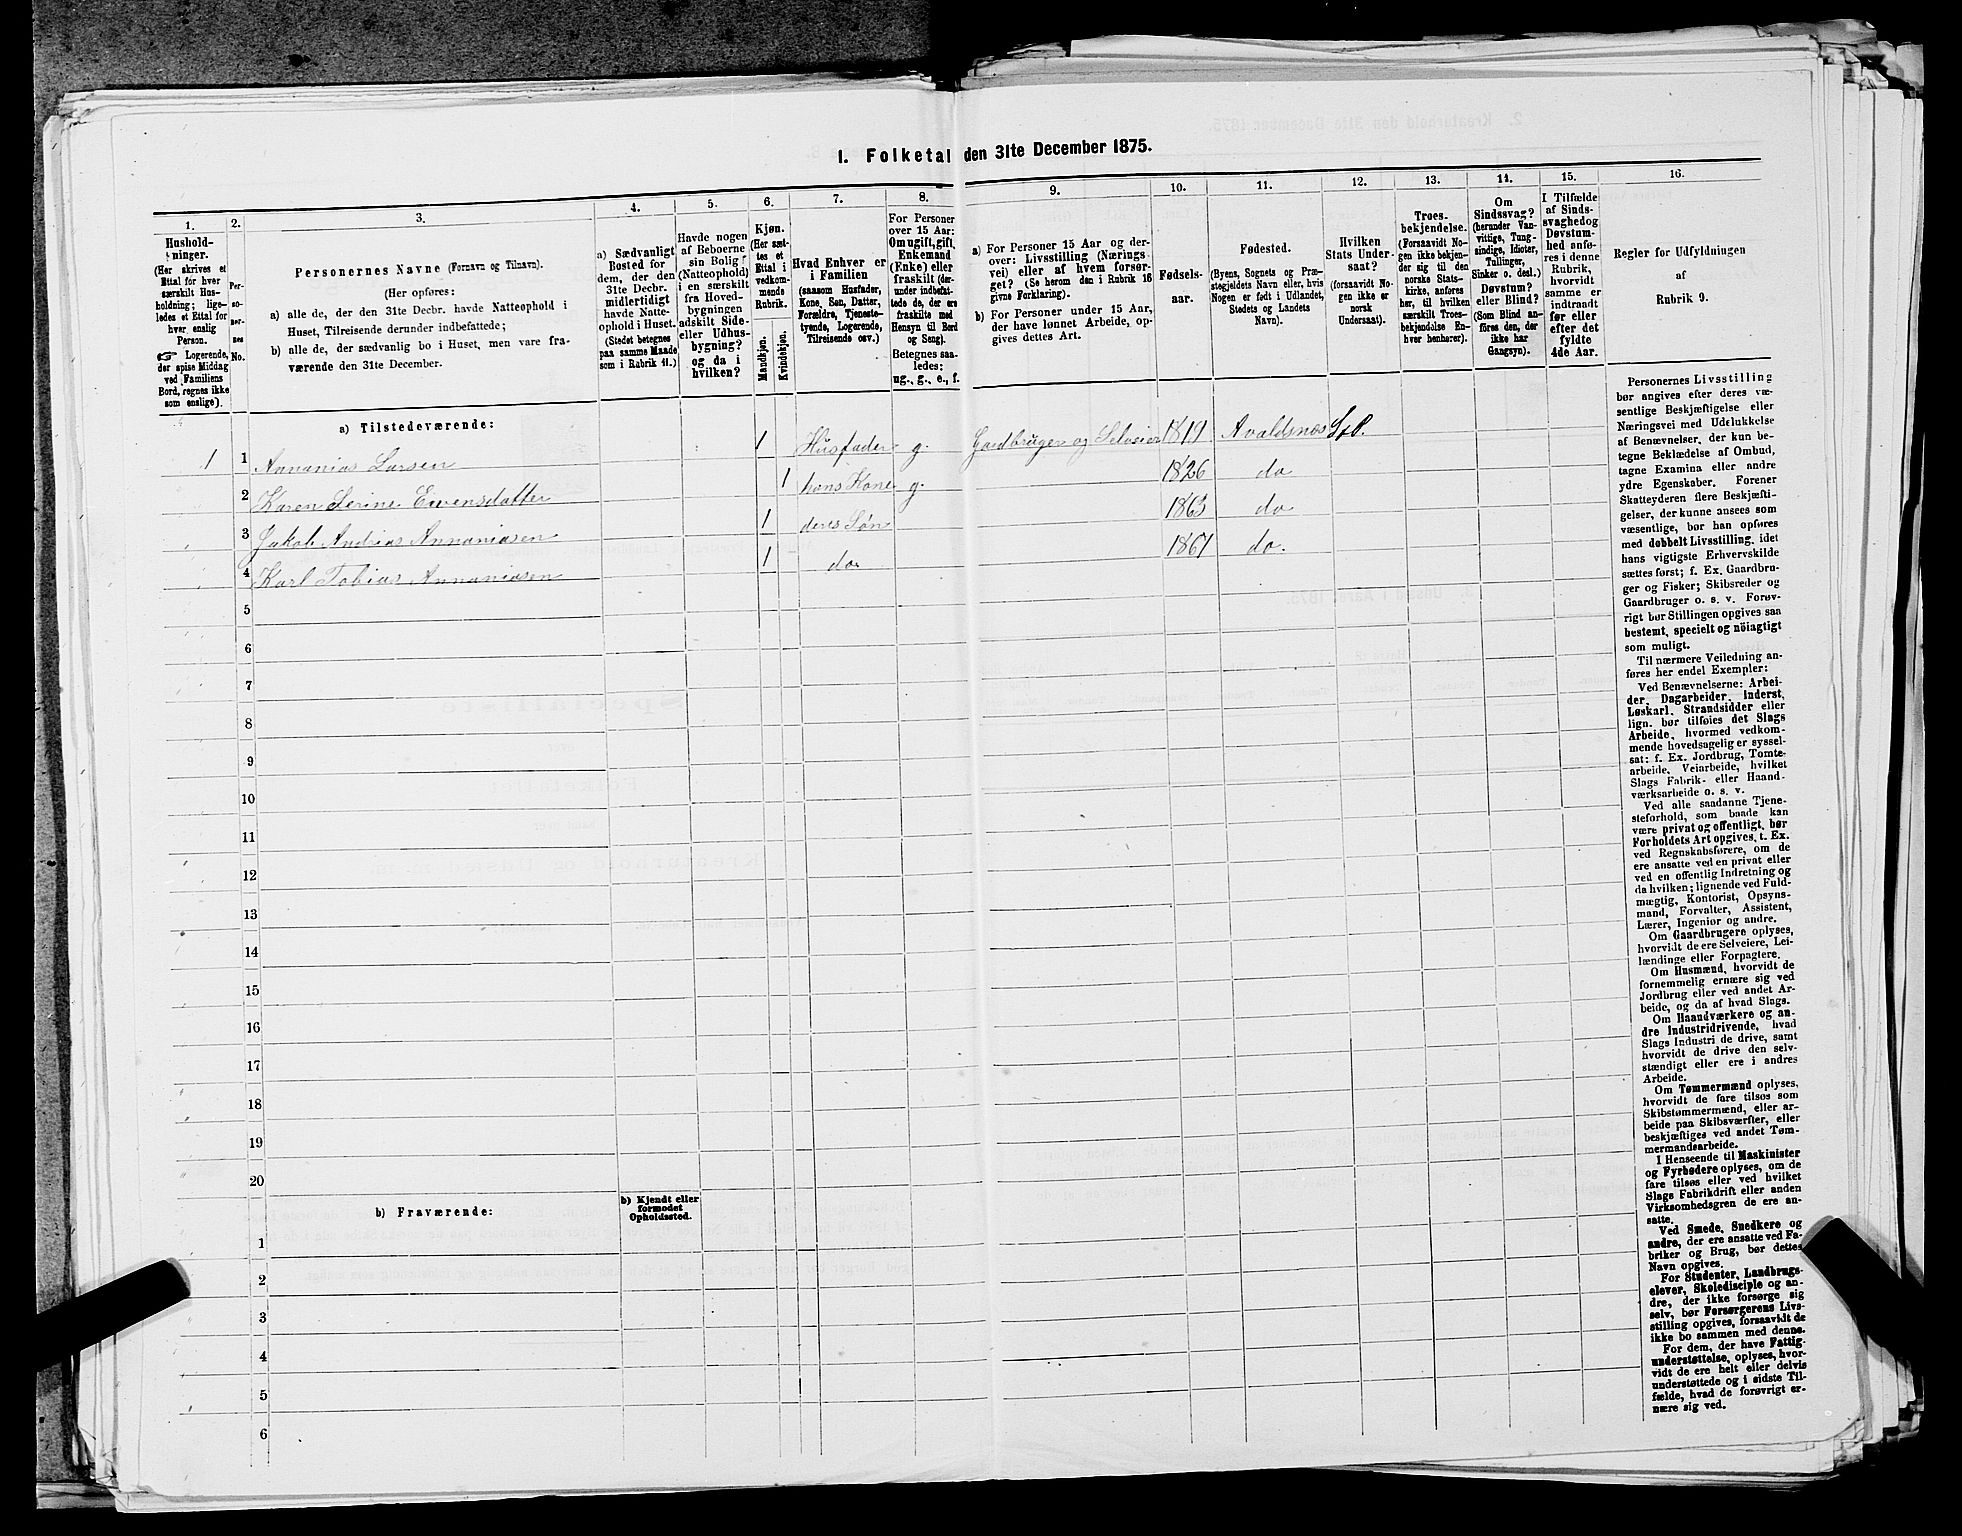 1. Folketal den 31te December 1875.
1. 2. 3. 4. 5. 6. 7. 8. 9. 10. 11. 12. 13. 14. 15. 16.
Hushold-
ninger.
(Her skrives et
Ettal for hver
særskilt Hus-
holdning; lige-
ledes et Ettal for
hver enslig
Person.
☞ Logerende,
der spise Middag
ved Familiens
Bord, regnes ikke
som enslige).
Per-
so-
ner-
nes
No.
Personernes Navne (Fornavn og Tilnavn).
(Her opføres:
a) alle de, der den 31te Decbr. havde Natteophold i
Huset, Tilreisende derunder indbefattede;
b) alle de, der sædvanlig bo i Huset, men vare fra-
værende den 31te December.
a) Sædvanligt
Bosted for
dem, der den
31te Decbr.
midlertidigt
havde Natte-
ophold i Huset.
(Stedet betegnes
paa samme Maade
som i Rubrik 11.)
Havde nogen
af Beboerne
sin Bolig
(Natteophold)
i en særskilt
fra Hoved-
bygningen
adskilt Side-
eller Udhus-
bygning?
og da i
hvilken?
Kjøn.
(Her sæt-
tes et
Ettal i
vedkom-
mende
Rubrik.
Mandkjøn.
Kvindekjøn.
Hvad Enhver er
i Familien
(saasom Husfader,
Kone, Søn, Datter,
Forældre, Tjeneste-
tyende, Logerende,
Tilreisende osv.)
For Personer
over 15 Aar:
Om ugift, gift,
Enkemand
(Enke) eller
fraskilt (der-
under indbefat-
tede de, der ere
fraskilte med
Hensyn til Bord
og Seng).
Betegnes saa-
ledes:
ug., g., e., f.
a) For Personer 15 Aar og der-
over: Livsstilling (Nærings-
vei) eller af hvem forsør-
get? (Se herom den i Rubrik 16
givne Forklaring).
b) For Personer under 15 Aar,
der have lønnet Arbeide, op-
gives dettes Art.
Fødsels-
aar.
Fødested.
(Byens, Sognets og Præ-
stegjeldets Navn eller, hvis
Nogen er født i Udlandet,
Stedets og Landets
Navn).
Hvilken
Stats Under-
saat?
(forsaavidt No-
gen ikke er
norsk
Undersaat).
Troes-
bekjendelse.
(Forsaavidt No-
gen ikke bekjen-
der sig til den
norske Stats-
kirke, anføres
her, til hvilken
særskilt Troes-
bekjendelse En-
hver henhører).
Om
Sindssvag?
(herunder Van-
vittige, Tung-
sindige, Idioter,
Tullinger,
Sinker o. desl.)
Døvstum?
eller Blind?
(Som Blind an-
føres den, der
ikke har
Gangsyn).
I Tilfælde
af Sinds-
svaghed og
Døvstum-
hed anfø-
res i denne
Rubrik,
hvorvidt
samme er
indtraadt
før eller
efter det
fyldte
4de Aar.
Regler for Udfyldningen
af
Rubrik 9.
a) Tilstedeværende:
1 1 Annanias Larsen 1 Husfader g. Gardbruger og Selveier 1819 Avaldsnes
2 Karen Serine Evensdatter 1 hans Kone g. 1826 do
3 Jakob Andrias Annaniasen 1 deres Søn 1863 do
4 Karl Tobias Annaniasen 1 do. 1867 do.
5
6
7
8
9
10
11
12
13
14
15
16
17
18
19
20
b) Fraværende:
b) Kjendt eller
formodet
Opholdssted.
1
2
3
4
5
6
Personernes Livsstilling
bør angives efter deres væ-
sentlige Beskjæftigelse eller
Næringsvei med Udelukkelse
af Benævnelser, der kun be-
tegne Beklædelse af Ombud,
tagne Examina eller andre
ydre Egenskaber. Forener
Skatteyderen flere Beskjæfti-
gelser, der kunne ansees som
væsentlige, bør han opføres
med dobbelt Livsstilling, idet
hans vigtigste Erhvervskilde
sættes først; f. Ex. Gaardbru-
ger og Fisker; Skibsreder og
Gaardbruger o. s. v. Forøv-
rigt bør Stillingen opgives saa
bestemt, specielt og nöiagtigt
som muligt.
Til nærmere Veiledning an-
føres her endel Exempler:
Ved Benævnelserne: Arbei-
der, Dagarbeider, Inderst,
Løskarl, Strandsidder eller
lign. bør tilføies det Slags
Arbeide, hvormed vedkom-
mende hovedsagelig er syssel-
sat: f. Ex. Jordbrug, Tomte-
arbeide, Veiarbeide, hvilket
Slags Fabrik- eller Haand-
værksarbeide o. s. v.
Ved alle saadanne Tjene-
steforhold, som baade kan
være privat og offentligt, bør
Forholdets Art opgives, t. Ex.
ved Regnskabsførere, om de
ere ansatte ved en privat eller
ved en offentlig Indretning og
da hvilken; lignende ved Fuld-
mægtig, Kontorist, Opsyns-
mand, Forvalter, Assistent,
Lærer, Ingeniør og andre.
Om Gaardbrugere oplyses,
hvorvidt de ere Selveiere, Lei-
lændinge eller Forpagtere.
Om Husmænd, hvorvidt de
fornemmelig ernære sig ved
Jordbrug eller ved andet Ar-
beide, og da af hvad Slags.
Om Haandværkere og an-
dre Industridrivende, hvad
Slags Industri de drive, samt
hvorvidt de drive den selv-
stændigt eller ere i andres
Arbeide.
Om Tømmermænd oplyses,
hvorvidt de fare tilsøs som
Skibstømmermænd, eller ar-
beide paa Skibsværfter, eller
beskjæftiges ved andet Tøm-
mermandsarbeide.
I Henseende til Maskinister
og Fyrbødere oplyses, om de
fare tilsøs eller ved hvilket
Slags Fabrikdrift eller anden
Virksomhedsgren de ere an-
satte.
Ved Smede, Snedkere og
andre, der ere ansatte ved Fa-
briker og Brug, bør dettes
Navn opgives.
For Studenter, Landbrugs-
elever, Skoledisciple og an-
dre, der ikke forsørge sig
selv, bør Forsørgerens Livs-
stilling opgives, forsaavidt de
ikke bo sammen med denne.
For dem, der have Fattig-
understøttelse, oplyses, hvor-
vidt de ere helt eller delvis
understøttede og i sidste Til-
fælde, hvad de forøvrigt er-
nære sig ved.